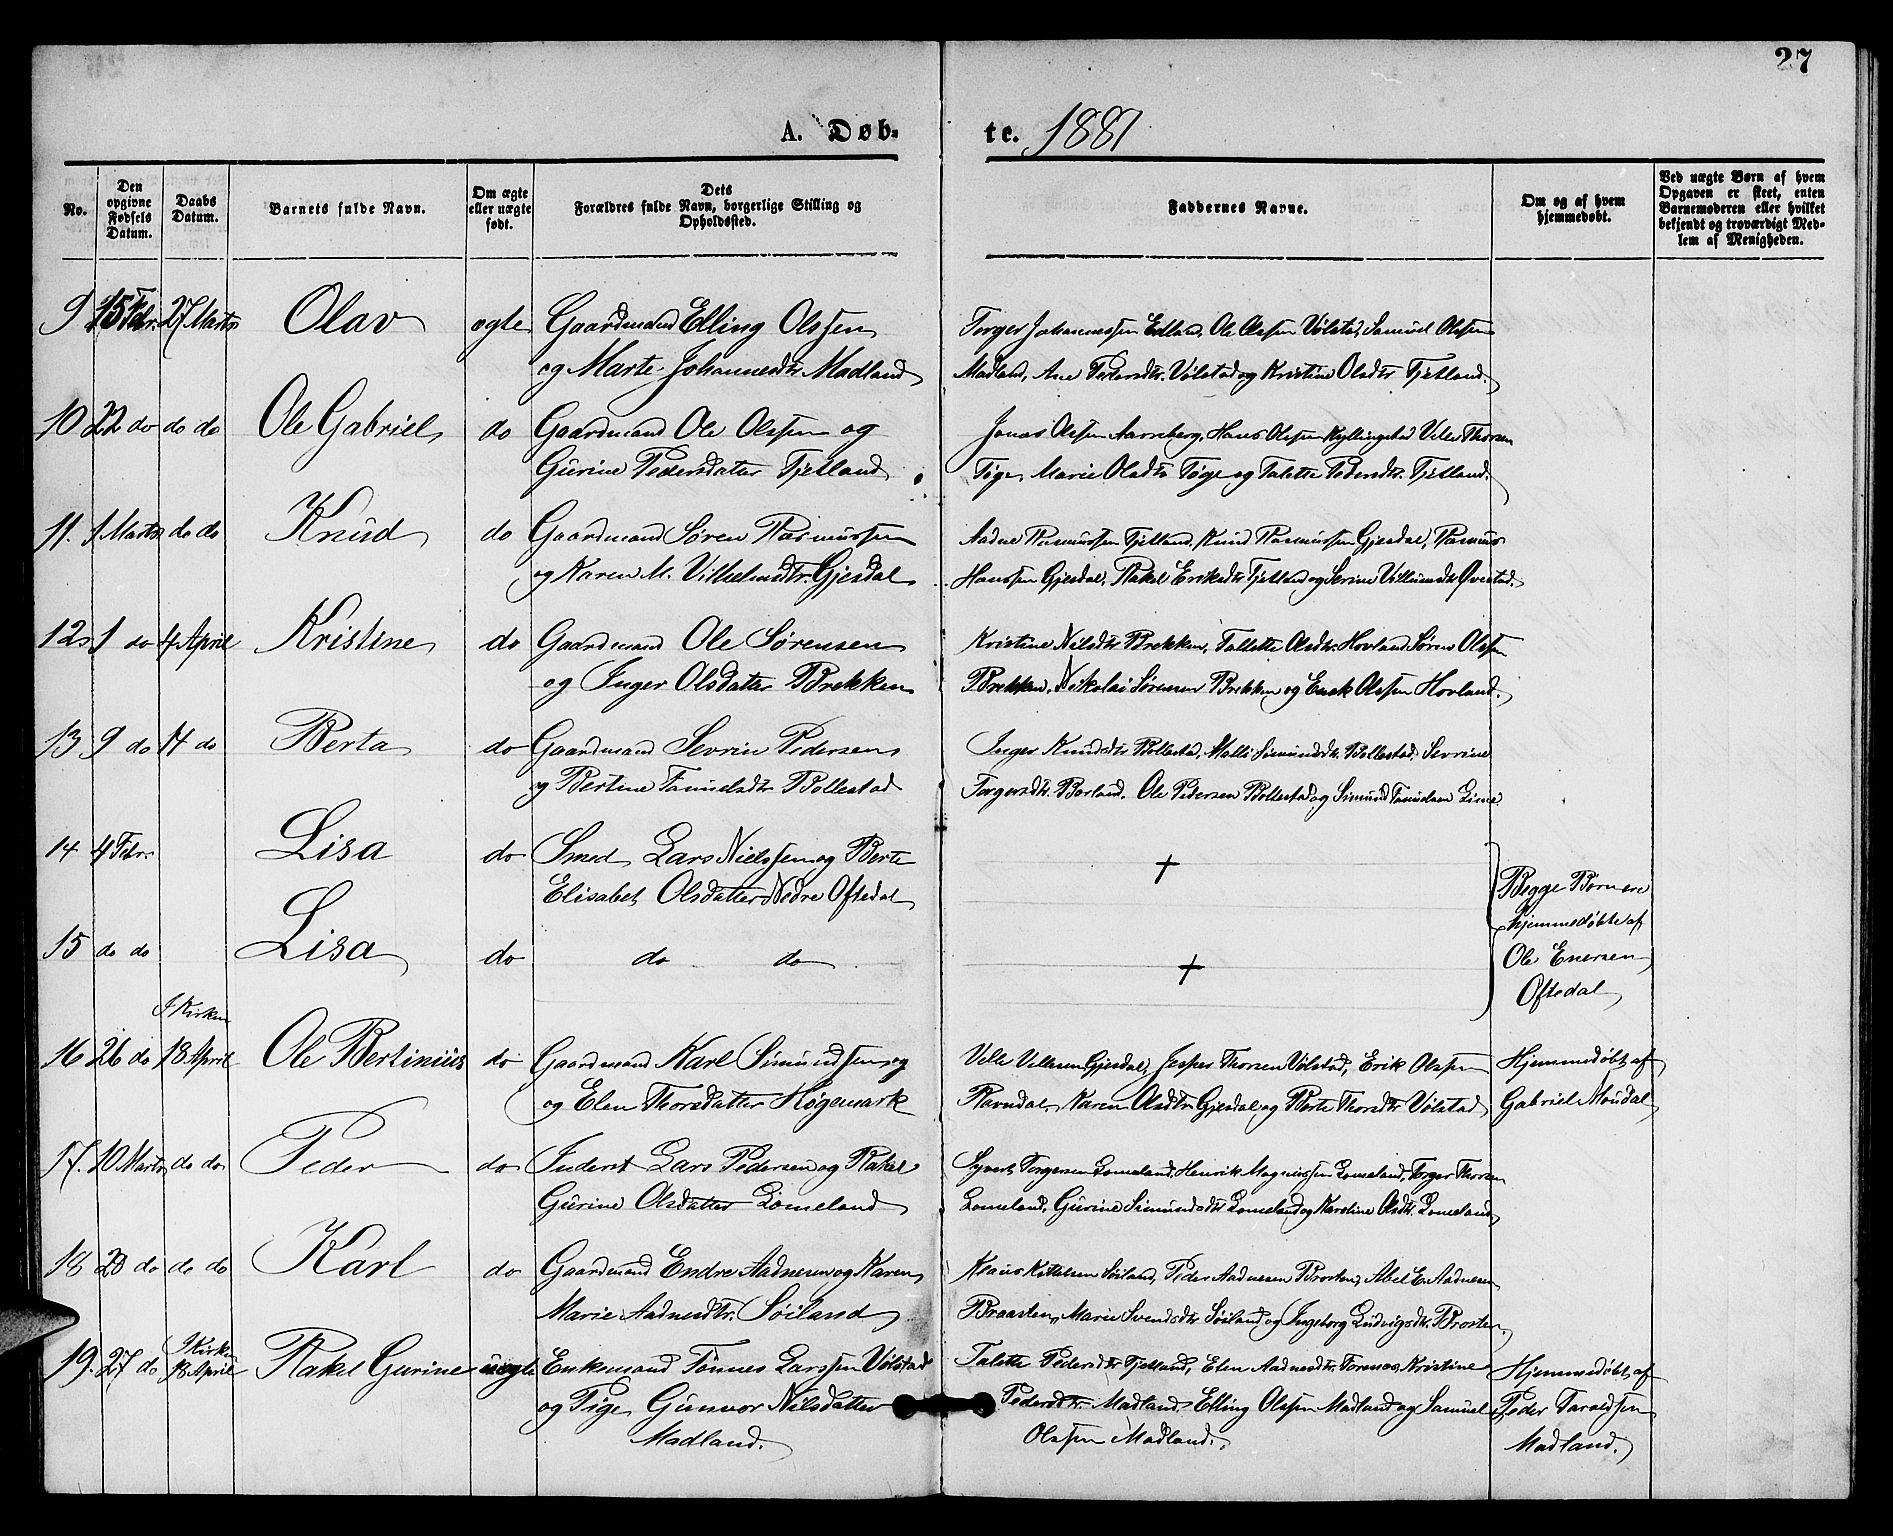 27
A. Døb-
te. 1881
No.
Den opgivne Fødsels Datum.
Daabs Datum.
Barnets fulde Navn.
Om ægte eller uægte født.
Dets Forældres fulde Navn, borgerlige Stilling og Opholdssted.
Faddernes Navne.
Om og af hvem hjemmedøbt.
Ved uægte Børn af hvem Opgaven er skeet, enten Barnemoderen eller hvilket bekjendt og troværdigt Medlem af Menigheden.
9 15 Febr. 27 Marts Olav ægte Gaardmand Elling Olssen
og Marte Johannesdtr. Madland
Torger Johannessen Edland, Ole Olssen Vølstad, Samuel Olssen
Madland, Ane Pedersdtr. Vølstad og Kristine Olsdtr Tjetland.
10 22 do do do Ole Gabriel do Gaardmand Ole Olssen og
Gurine Pedersdatter Tjetland
Jonas Olssen Aarreberg, Hans Olssen Kyllingstad Velle Thorsen
Tøge, Marie Olsdtr Tøge og Talette Pedersdtr. Tjetland.
11. 1 Marts do do Knud do Gaardmand Søren Rasmussen
og Karen M. Vilhelmdtr. Gjesdal
Aadne Rasmussen Tjetland, Knud Rasmussen Gjesdal, Rasmus
Hanssen Gjesdal, Rakel Eriksdtr Tjetland og Serine Villumsdtr Øvestad.
12 1 do 4 April Kristine do Gaardmand Ole Sørensen
og Inger Olsdatter Brekken
Kristine Nilsdtr Brekken, Tallette Olsdtr. Hovland, Søren Olssen
Brekken, Nikolai Sørensen Brekken og Enok Olssen Hovland.
13 9 do 14 do Berta do Gaardmand Sevrin Pedersen
og Bertine Tanielsdtr Bollestad
Inger Knudsdtr Bollestad, Malli Simundsdtr. Bollestad, Sevrine
Torgersdtr. Borland. Ole Pedersen Bollestad og Simund Tanielsen Lime
14 4 Febr. Lisa do Smed Lars Nielssen og Berte
Elisabet Olsdatter Nedre Oftedal
+
15 do do Lisa do do do
+
Begge Børnene
hjemmedøbte af
Ole Enersen
Oftedal
I Kirken
16 26 do 18 April Ole Bertinius do Gaardmand Karl Simundssen og
og Elen Thorsdatter Høgemark
Velle Vellesen Gjesdal, Jesper Thorsen Vølstad, Erik Olssen
Ravndal, Karen Olsdtr Gjesdal og Berte Thorsdtr Vølstad
Hjemmedøbt af
Gabriel Moudal
17. 10 Marts do do Peder do Inderst Lars Pedersen og Rakel
Gurine Olsdatter Lomeland
Syvert Torgersen Lomeland, Henrik Magnussen Lomeland, Torger Thorsen
Lomeland, Gurine Simundsdtr Lomeland og Karoline Olsdtr. Lomeland
18 28 do do do Karl do Gaardmand Endre Aadnesen og Karen
Marie Aadnesdtr. Søiland
Klaus Kittelsen Søiland, Peder Aadnesen Brosten, Abel E. Aadnesen
Braasten, Marie Svendsdtr Søiland og Ingeborg Ludvigsdtr. Brosten.
I Kirken
19. 27 do 18 April Rakel Gurine uægte Enkemand Tønnes Larssen Vølstad
og Pige Gunvor Nilsdatter
Madland.
Talette Pedersdtr Tjetland, Elen Aadnesdtr. Kristine
Pedersdtr Madland, Elling Olssen Madland og Samuel
Olssen Madland.
Hjemmedøbt af
Peder Taraldsen
Madland.